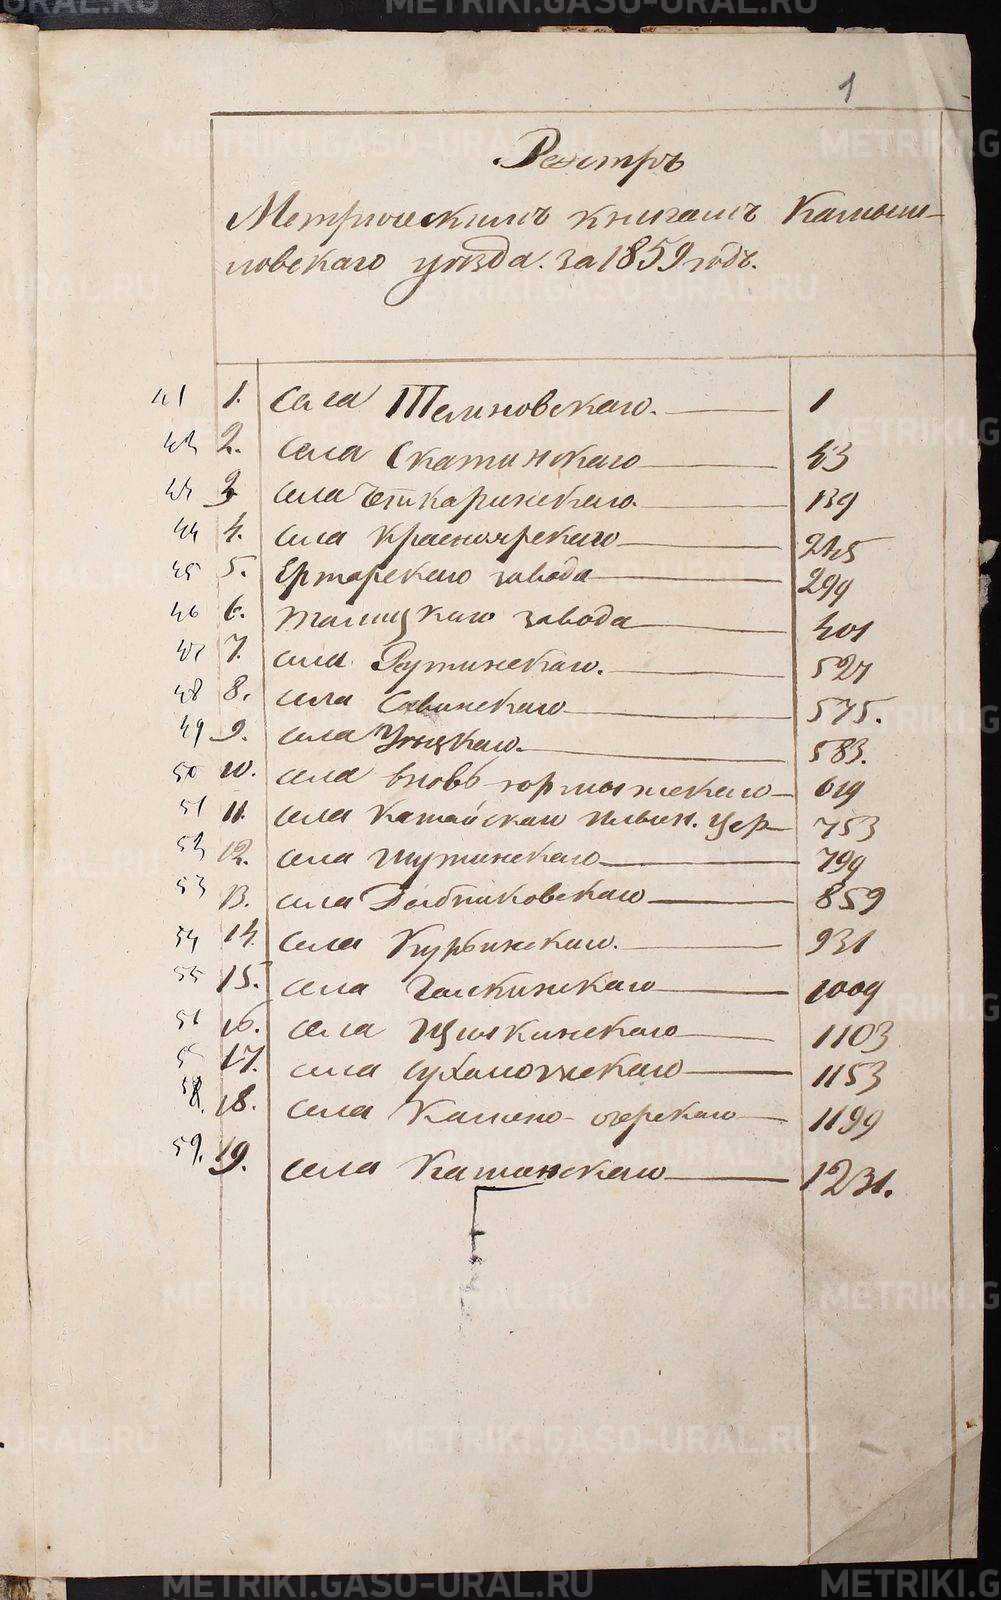 1
Реэстръ
Метрическимъ книгамъ Камыш-
ловскаго уѣзда. за 1859 годъ.
41 1. села Темновскаго. 1
42 2. села Скатинскаго 43
43 3 села Чткаринскаго. 139
44 4. села Красноярскаго 245
45 5. Ертарскаго завода 299
46 6. Талицкаго завода 401
47 7. села 527
48 8. села Савинскаго 575.
49 9. села Уецкаго. 583.
50 10. села вновь-юрмытскаго 619
51 11. села Катайскаго Ильин. Цер 753
52 12. села Шутинскаго 799
53 13. села Рыбниковскаго 859
54 14. села Курьинскаго. 931
55 15. села Галкинскаго 1009
56 16. села 1103
57 17. села Сухоложскаго 1153
58. 18. села Камено-озерскаго 1199
59. 19. села 1231.
METRIKI.GASO-URAL.RU